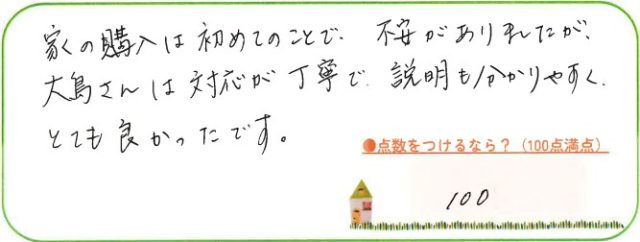 家の購入は初めてのことで、不安がありましたが、
大島さんは対応が丁寧で、説明も分かりやすく、
とても良かったです。
●点数をつけるなら？（100点満点）
100